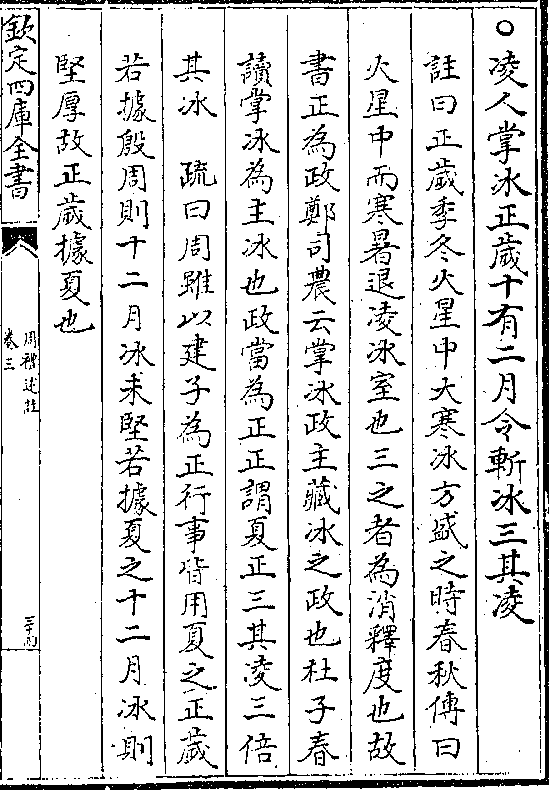 ○凌人掌冰正歲十有二月令斬冰三其凌
註曰正歲季冬火星中大寒冰方盛之時春秋傳曰
火星中而寒暑退凌冰室也三之者為消釋度也故
書正為政鄭司農云掌冰政主藏冰之政也杜子春
讀掌冰為主冰也政當為正正謂夏正三其凌三倍
其冰　疏曰周雖以建子為正行事皆用夏之正歲
若據殷周則十二月冰未堅若據夏之十二月冰則
堅厚故正歲據夏也
欽定四庫全書
周禮述註
卷三
三十四